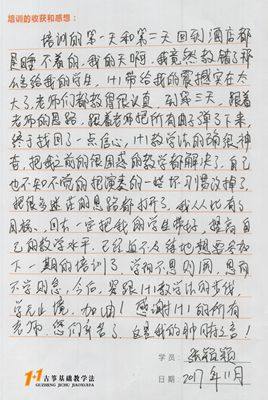 培训的收获和感想：
培训的第一天和第二天回到酒店都
是睡不着的，我的天啊，我竟然教错了那
么多给我的学生，1+1带给我的震撼实在太
大了，老师们都教得很认真，到第三天，跟着
老师的思路，跟着老师把所有曲子弹了下来，
终于找回了一点信心，1+1教学法的确很神
奇，把我之前的很困惑的教学都解决了，自己
也不知不觉的把演奏的一些坏习惯改掉了，
把很急迷茫的思路都打开了，我从此有了
目标，回去一定把我的学生带好，提高自
己的教学水平，已经迫不及待地想要参加
下一期的培训了，学而不思则罔，思而
不学则怠，今后，紧跟1+1教学法的步伐，
学无止境，加油！感谢1+1的所有
老师，您们辛苦了，这是我的肺腑之言！
学员：张颖颖
日期：2017年11月
1+1 古筝基础教学法
GUZHENG JICHU JIAOXUEFA